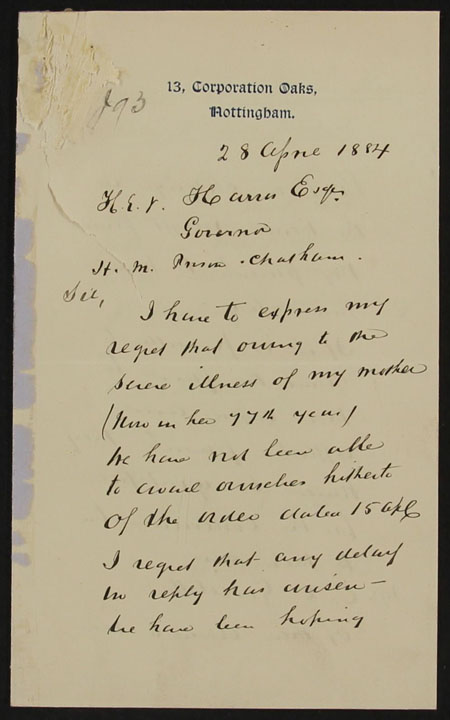 893
13, Corporation Oaks,
Nottingham.
28 April 1884
H.E.V. Harris Esqr
Governor
H. M. Prison Chatham.
Sir,
I have to express my
regret that owing to the
severe illness of my mother
(Now in her 77th year)
We have not been able
to avail ourselves hitherto
of the order dated 15 Apl
I regret that any delay
in reply has arisen -
We have been hoping